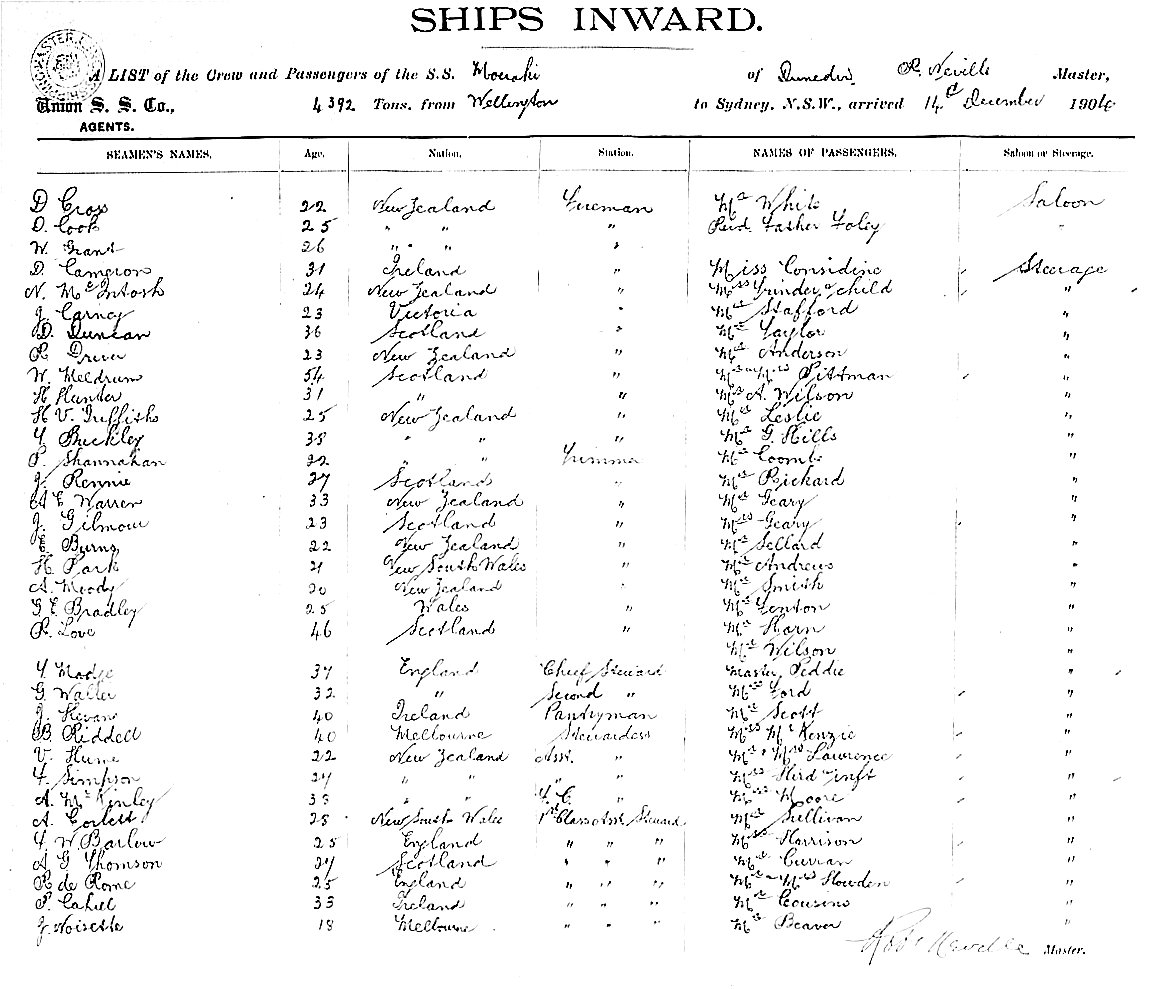 SHIPS INWARD.
A LIST of the Crew and Passengers of the S.S. Moeraki of Dunedin R. Neville Master,
Union S. S. Co., 4392 Tons, from Wellington to Sydney, N.S.W., arrived 14th December 1904
AGENTS.
SEAMEN'S NAMES. Age. Nation. Station. NAMES OF PASSENGERS. Saloon or Steerage.
D Cross 22 New Zealand Fireman Mr White Saloon
D. Cook 25 " " " Revd. Father Foley "
W. Grant 26 " " " "
D. Cameron 31 Ireland " Miss Considine Steerage
N. McIntosh 24 New Zealand " Mrs Grinder & child "
J. Carney 23 Victoria " Mr Stafford "
D. Duncan 36 Scotland " Mr Taylor "
R Driver 23 New Zealand " Mr Anderson "
W. Meldrum 54 Scotland " Mr & Mrs Pittman "
H Hunter 31 " " Mr A. Wilson "
H V. Griffiths 25 New Zealand " Mr Leslie "
Buckley 38 " " " Mr G. Hills "
P. Shannahan 22 " " Trimmer Mr Coomb "
J. Rennie 27 Scotland " Mr Richard "
A E Warren 33 New Zealand " Mr Geary "
J. Gilmour 23 Scotland " Mrs Geary "
E. Burns 22 New Zealand " Mr Sellard "
H. Park 21 New South Wales " Mr Andrews "
A. Moody 20 New Zealand " Mr Smith "
G. E. Bradley 25 Wales " Mr Fenton "
R. Love 46 Scotland " Mr Horn "
Mr Wilson "
F. Madge 37 England Chief Steward Master Peddie "
G. Walter 32 " Second " Ford "
J. Kevan 40 Ireland Pantryman Scott "
B. Riddell 40 Melbourne Stewardess McKenzie "
V. Hume 22 New Zealand Asst. " Mr & Mrs Lawrence "
F. Simpson 24 " " " " Mrs Hird & inft "
A. McKinley 33 " " F. C. " Moore "
A. Corlett 25 New South Wales 1st Class Asst. Steward Sullivan "
F. W Barlow 25 England " " " Harrison "
A G Thomson 27 Scotland " " " Curran "
R de Rome 25 England " " " Mr & Mrs Howden "
P. Cahill 33 Ireland " " " Cousins "
J Noisette 18 Melbourne " " " Beaver "
Robt Neville Master.